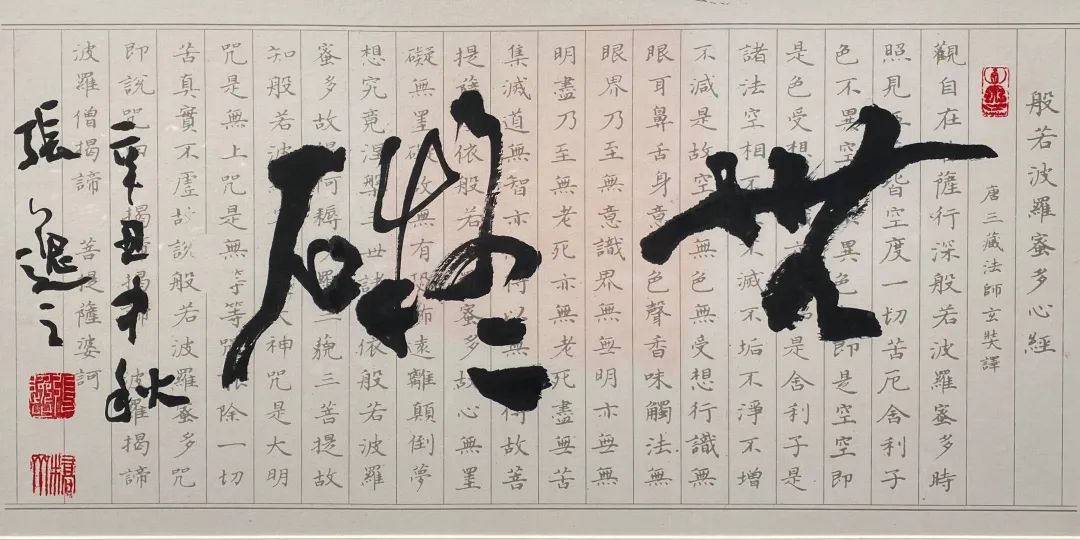 般若波羅蜜多心經
唐三藏法師玄奘譯
觀自在菩薩行深般若波羅蜜多時
照見皆空度一切苦厄舍利子
色不異空異色即是空空即
是色受想是舍利子是
諸法空相不不滅不垢不淨不增
不減是故空無色無受想行識無
眼耳鼻舌身意色聲香味觸法無
眼界乃至無意識界無無明亦無無
明盡乃至無老死亦無老死盡無苦
集滅道無智亦得以無得故菩
提薩依般若蜜多故心無罣
礙無罣礙故無有恐怖遠離顛倒夢
想究竟涅槃三世諸依般若波羅
蜜多故得阿耨羅三藐三菩提故
知般若波大神咒是大明
咒是無上咒是無等等咒除一切
苦真實不虛故說般若波羅蜜多咒
即說咒曰揭諦揭諦波羅揭諦
波羅僧揭諦 菩提薩婆訶
無礙
辛丑秋
張逸之